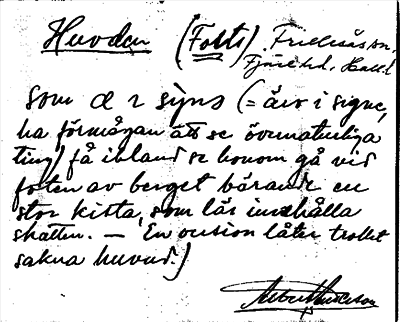 Huvdan (Folts) Fridhäs sn,
Fjäre hd, Hall.
som æ r sijns (= är i signe,
ha förmågan att se övernaturliga
ting) få ibland se honom gå vid
foten av berget bärande en
stor kista, som lär innehålla
skatten. — En version låter trollet
sakna huvud.)
Albert